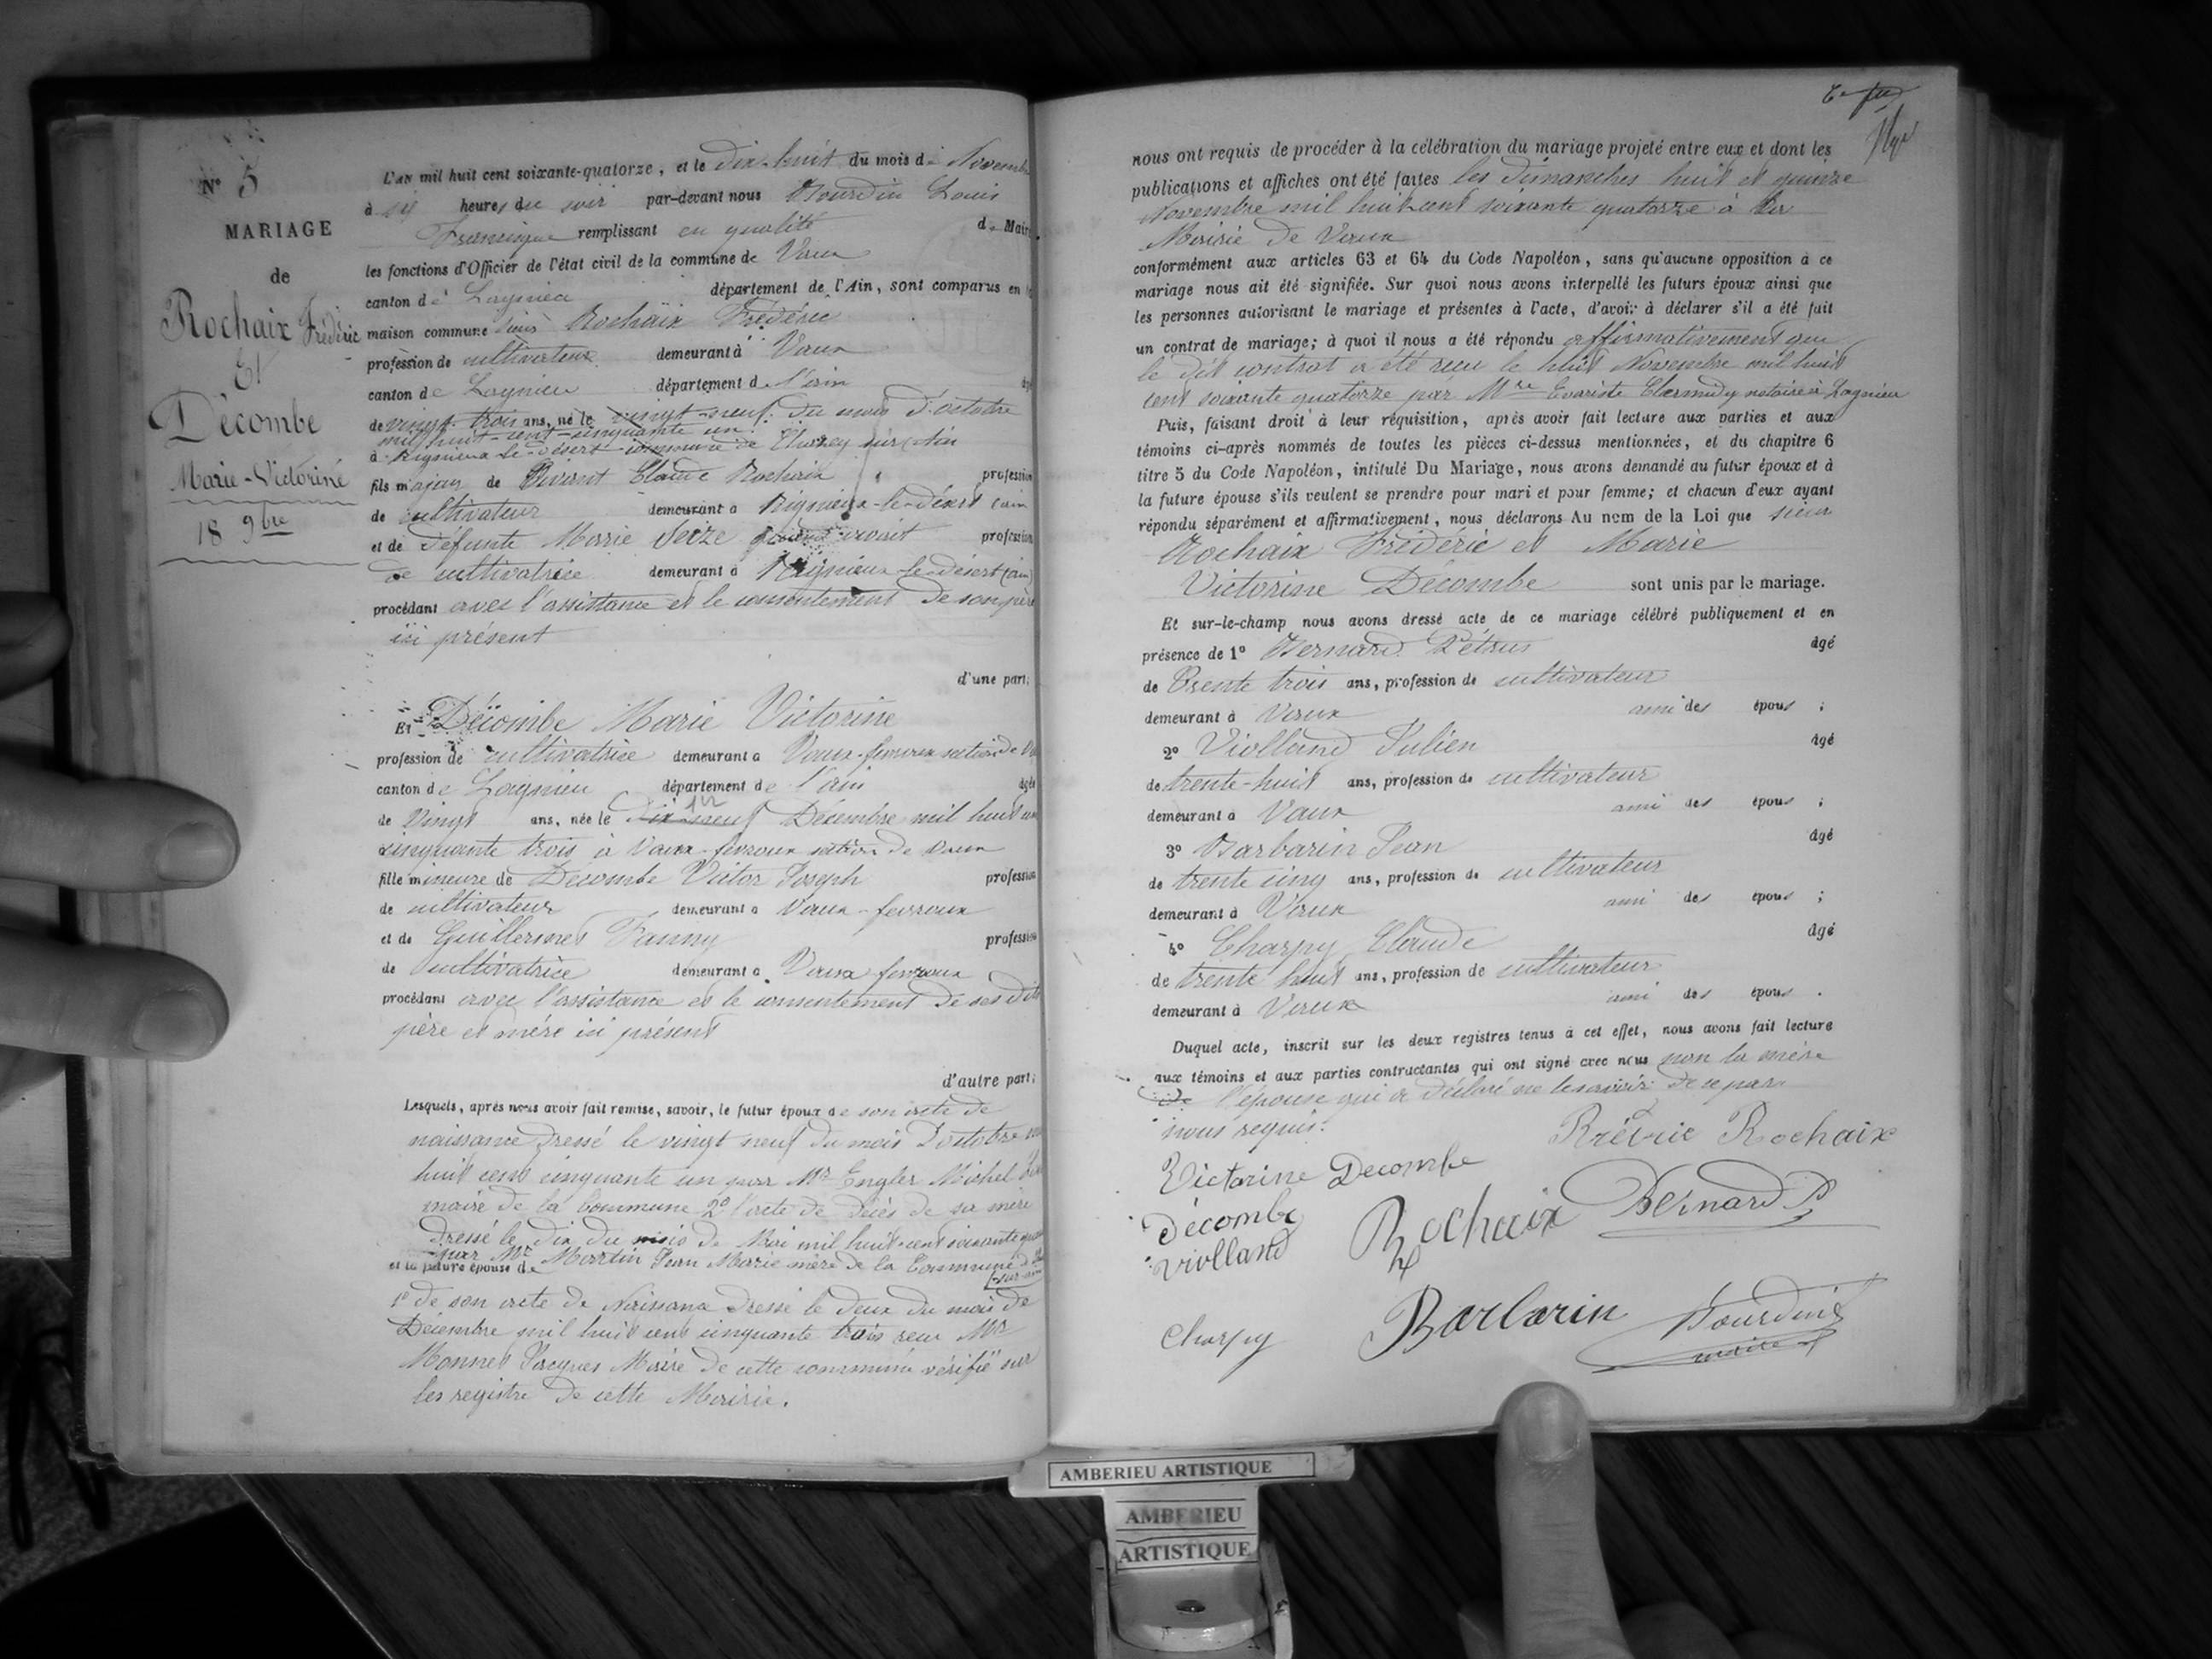 N° 5
MARIAGE
de
Rochaix Frédéric
Et
Décombe
Marie-Victorine
18 9bre
L'an mil huit cent soixante-quatorze, et le dix-huit du mois de Novembre
à six heures du soir par-devant nous Bourdin Louis
Francisque remplissant en qualité de Maire
les fonctions d'Officier de l'état civil de la commune de Vaux
canton de Lagnieu département de l'Ain, sont comparus en la
maison commune sieur Rochaix Frédéric
profession de cultivateur demeurant à Vaux
canton de Lagnieu département de l'ain âgé
de vingt-trois ans, né le vingt-neuf du mois d'octobre
mil huit-cent-cinquante un
à Rignieux-le-désert commune de Chazey sur Ain
fils majeur de Vivant Claude Rochaix profession
de cultivateur demeurant à Rignieux-le-désert (ain
et de défunte Marie Seize quand vivait profession
de cultivatrice demeurant à Rignieux-le-désert (ain)
procédant avec l'assistance et le consentement de son père
ici présent
d'une part;
Et Décombe Marie Victorine
profession de cultivatrice demeurant à Vaux-fevroux section de Vaux
canton de Lagnieu département de l'ain âgée
de Vingt ans, née le Décembre mil huit cent
cinquante trois à Vaux-fevroux section de Vaux
fille mineure de Décombe Victor Joseph profession
de cultivateur demeurant à Vaux-fevroux
et de Guillermet Fanny profession
de cultivatrice demeurant à Vaux fevroux
procédant avec l'assistance et le consentement de ses dits
père et mère ici présent
d'autre part;
Lesquels, après nous avoir fait remise, savoir, le futur époux de son acte de
naissance dressé le vingt neuf du mois d'octobre mil
huit cent cinquante un par Mr Engler Michel
maire de la Commune 2° l'acte de décès de sa mère
dressé le dix du mois de Mai mil huit-cent soixante
par Mr Martin Jean Marie maire de la Commune
et la future épouse de
1° de son acte de Naissance dressé le deux du mois de
Décembre mil huit cent cinquante trois reçu Mr
Monnet Jacques Maire de cette commune vérifié sur
les registre de cette Mairie.
nous ont requis de procéder à la célébration du mariage projeté entre eux et dont les
publications et affiches ont été faites les dimanches huit et quinze
Novembre mil huit cent soixante quatorze à la
Mairie de Vaux
conformément aux articles 63 et 64 du Code Napoléon, sans qu'aucune opposition à ce
mariage nous ait été signifiée. Sur quoi nous avons interpellé les futurs époux ainsi que
les personnes autorisant le mariage et présentes à l'acte, d'avoir à déclarer s'il a été fait
un contrat de mariage; à quoi il nous a été répondu affirmativement que
le dit contrat a été reçu le huit Novembre mil huit
cent soixante quatorze par Mre Evariste Claremidy notaire à Lagnieu
Puis, faisant droit à leur réquisition, après avoir fait lecture aux parties et aux
témoins ci-après nommés de toutes les pièces ci-dessus mentionnées, et du chapitre 6
titre 5 du Code Napoléon, intitulé Du Mariage, nous avons demandé au futur époux et à
la future épouse s'ils veulent se prendre pour mari et pour femme; et chacun d'eux ayant
répondu séparément et affirmativement, nous déclarons Au nom de la Loi que sieur
Rochaix Frédéric et Marie
Victorine Décombe sont unis par le mariage.
Et sur-le-champ nous avons dressé acte de ce mariage célébré publiquement et en
présence de 1° Bernard Pétrus âgé
de trente trois ans, profession de cultivateur
demeurant à Vaux ami des époux ;
2° Violland Julien âgé
de trente-huit ans, profession de cultivateur
demeurant à Vaux ami des époux ;
3° Barbarin Jean âgé
de trente cinq ans, profession de cultivateur
demeurant à Vaux ami des époux ;
4° Charpy Claude âgé
de trente huit ans, profession de cultivateur
demeurant à Vaux ami des époux .
Duquel acte, inscrit sur les deux registres tenus à cet effet, nous avons fait lecture
aux témoins et aux parties contractantes qui ont signé avec nous non la mère
de l'épouse qui a déclaré ne le savoir de ce par
nous requis.
Frédéric Rochaix
Victorine Decombe
Décombe
Rochaix
Bernard P
Violland
Charpy
Barbarin
Bourdin
maire
AMBERIEU ARTISTIQUE
AMBERIEU
ARTISTIQUE